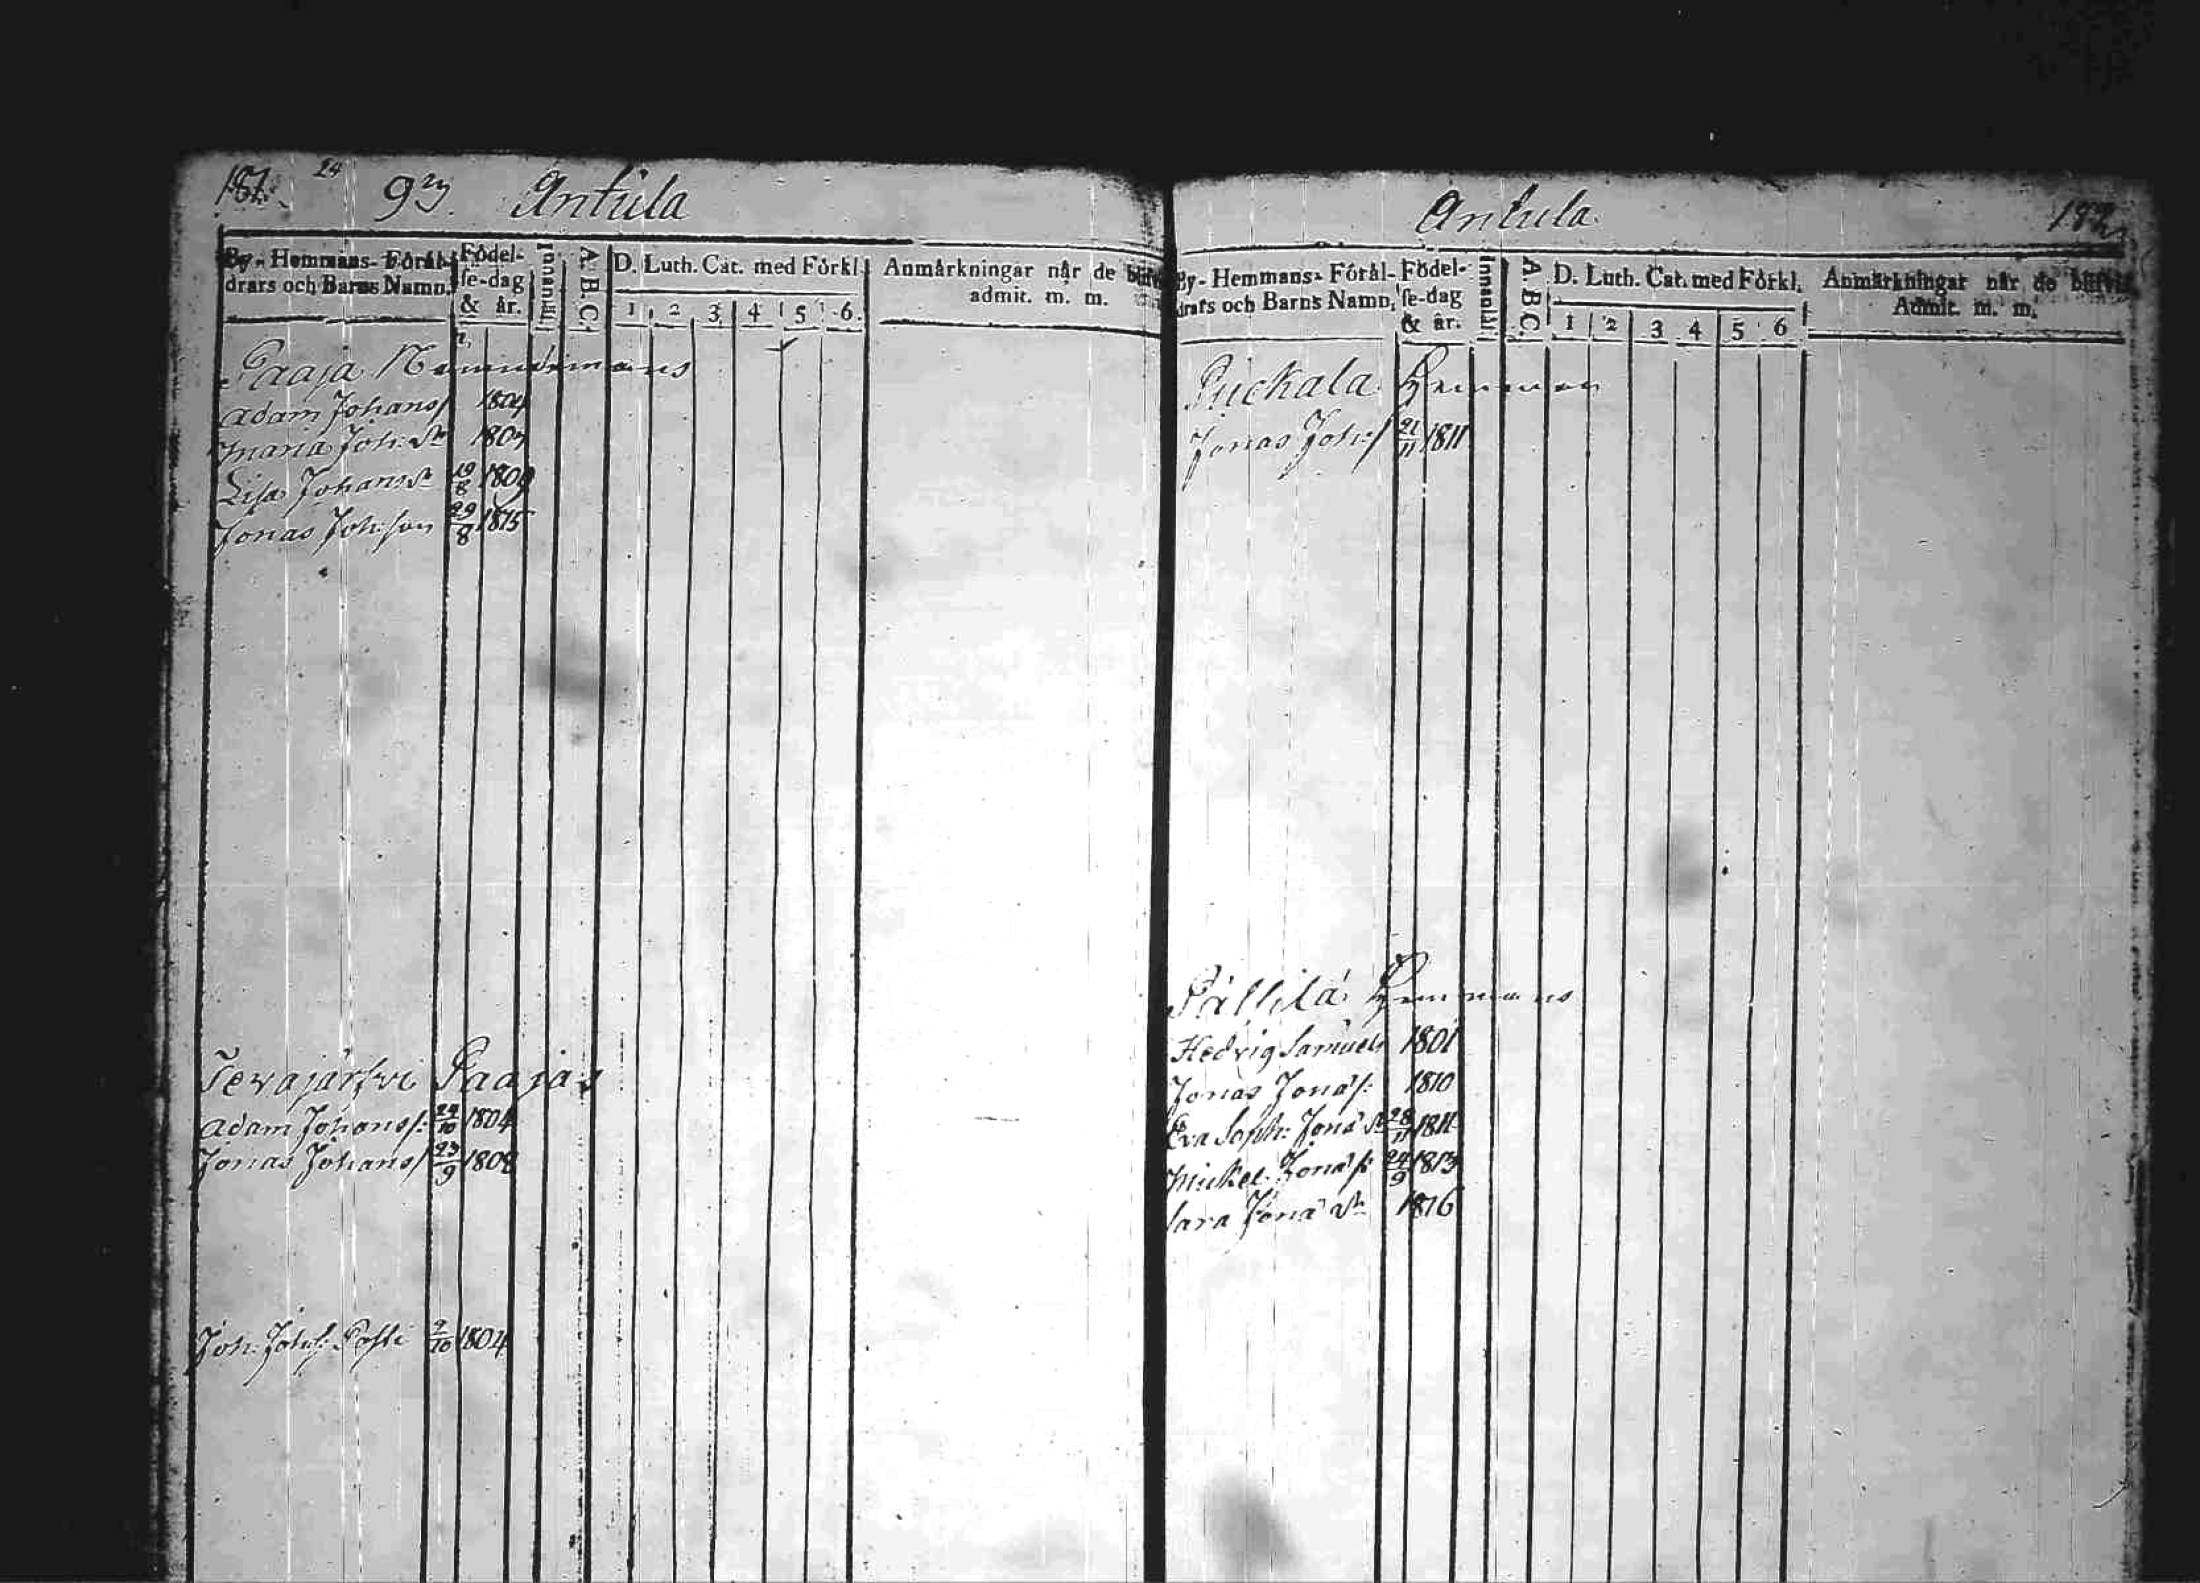 181.
24
93. Antula
By- Hemmans- Föräl-
drars och Barns Namn.
Födel-
se-dag
& år.
Innantil.
A. B. C.
D. Luth. Cat. med Förkl.
1 2 3 4 5 6.
Anmärkningar når de blifvit
admit. m. m.
Paaja
Adam Johans/ 1804
Maria Joh: dr 1807
Lisa Johans dr 19/8 1809
Jonas Joh: son 29/8 1815
Tevajärfvi Paajas
Adam Johans/: 24/10 1804
Jonas Johans/ 23/9 1808
Joh: Joh/: Posti 2/10 1804
Antula.
182.
By- Hemmans- Föräl-
drars och Barns Namn.
Födel-
se-dag
& år.
Innantil.
A. B C.
D. Luth. Cat. med Förkl.
1 2 3 4 5 6
Anmärkningar når de blifvit
Admit. m. m.
Puckala Hemman
Jonas Joh:/ 21/11 1811
Pällilä Hemmans
Hedvig Samuels 1801
Jonas Jona/: 1810
Eva Soph: Jona dr 28/11 1811
Mickel Jona/: 24/9 1813
Sara Jona dr 1816